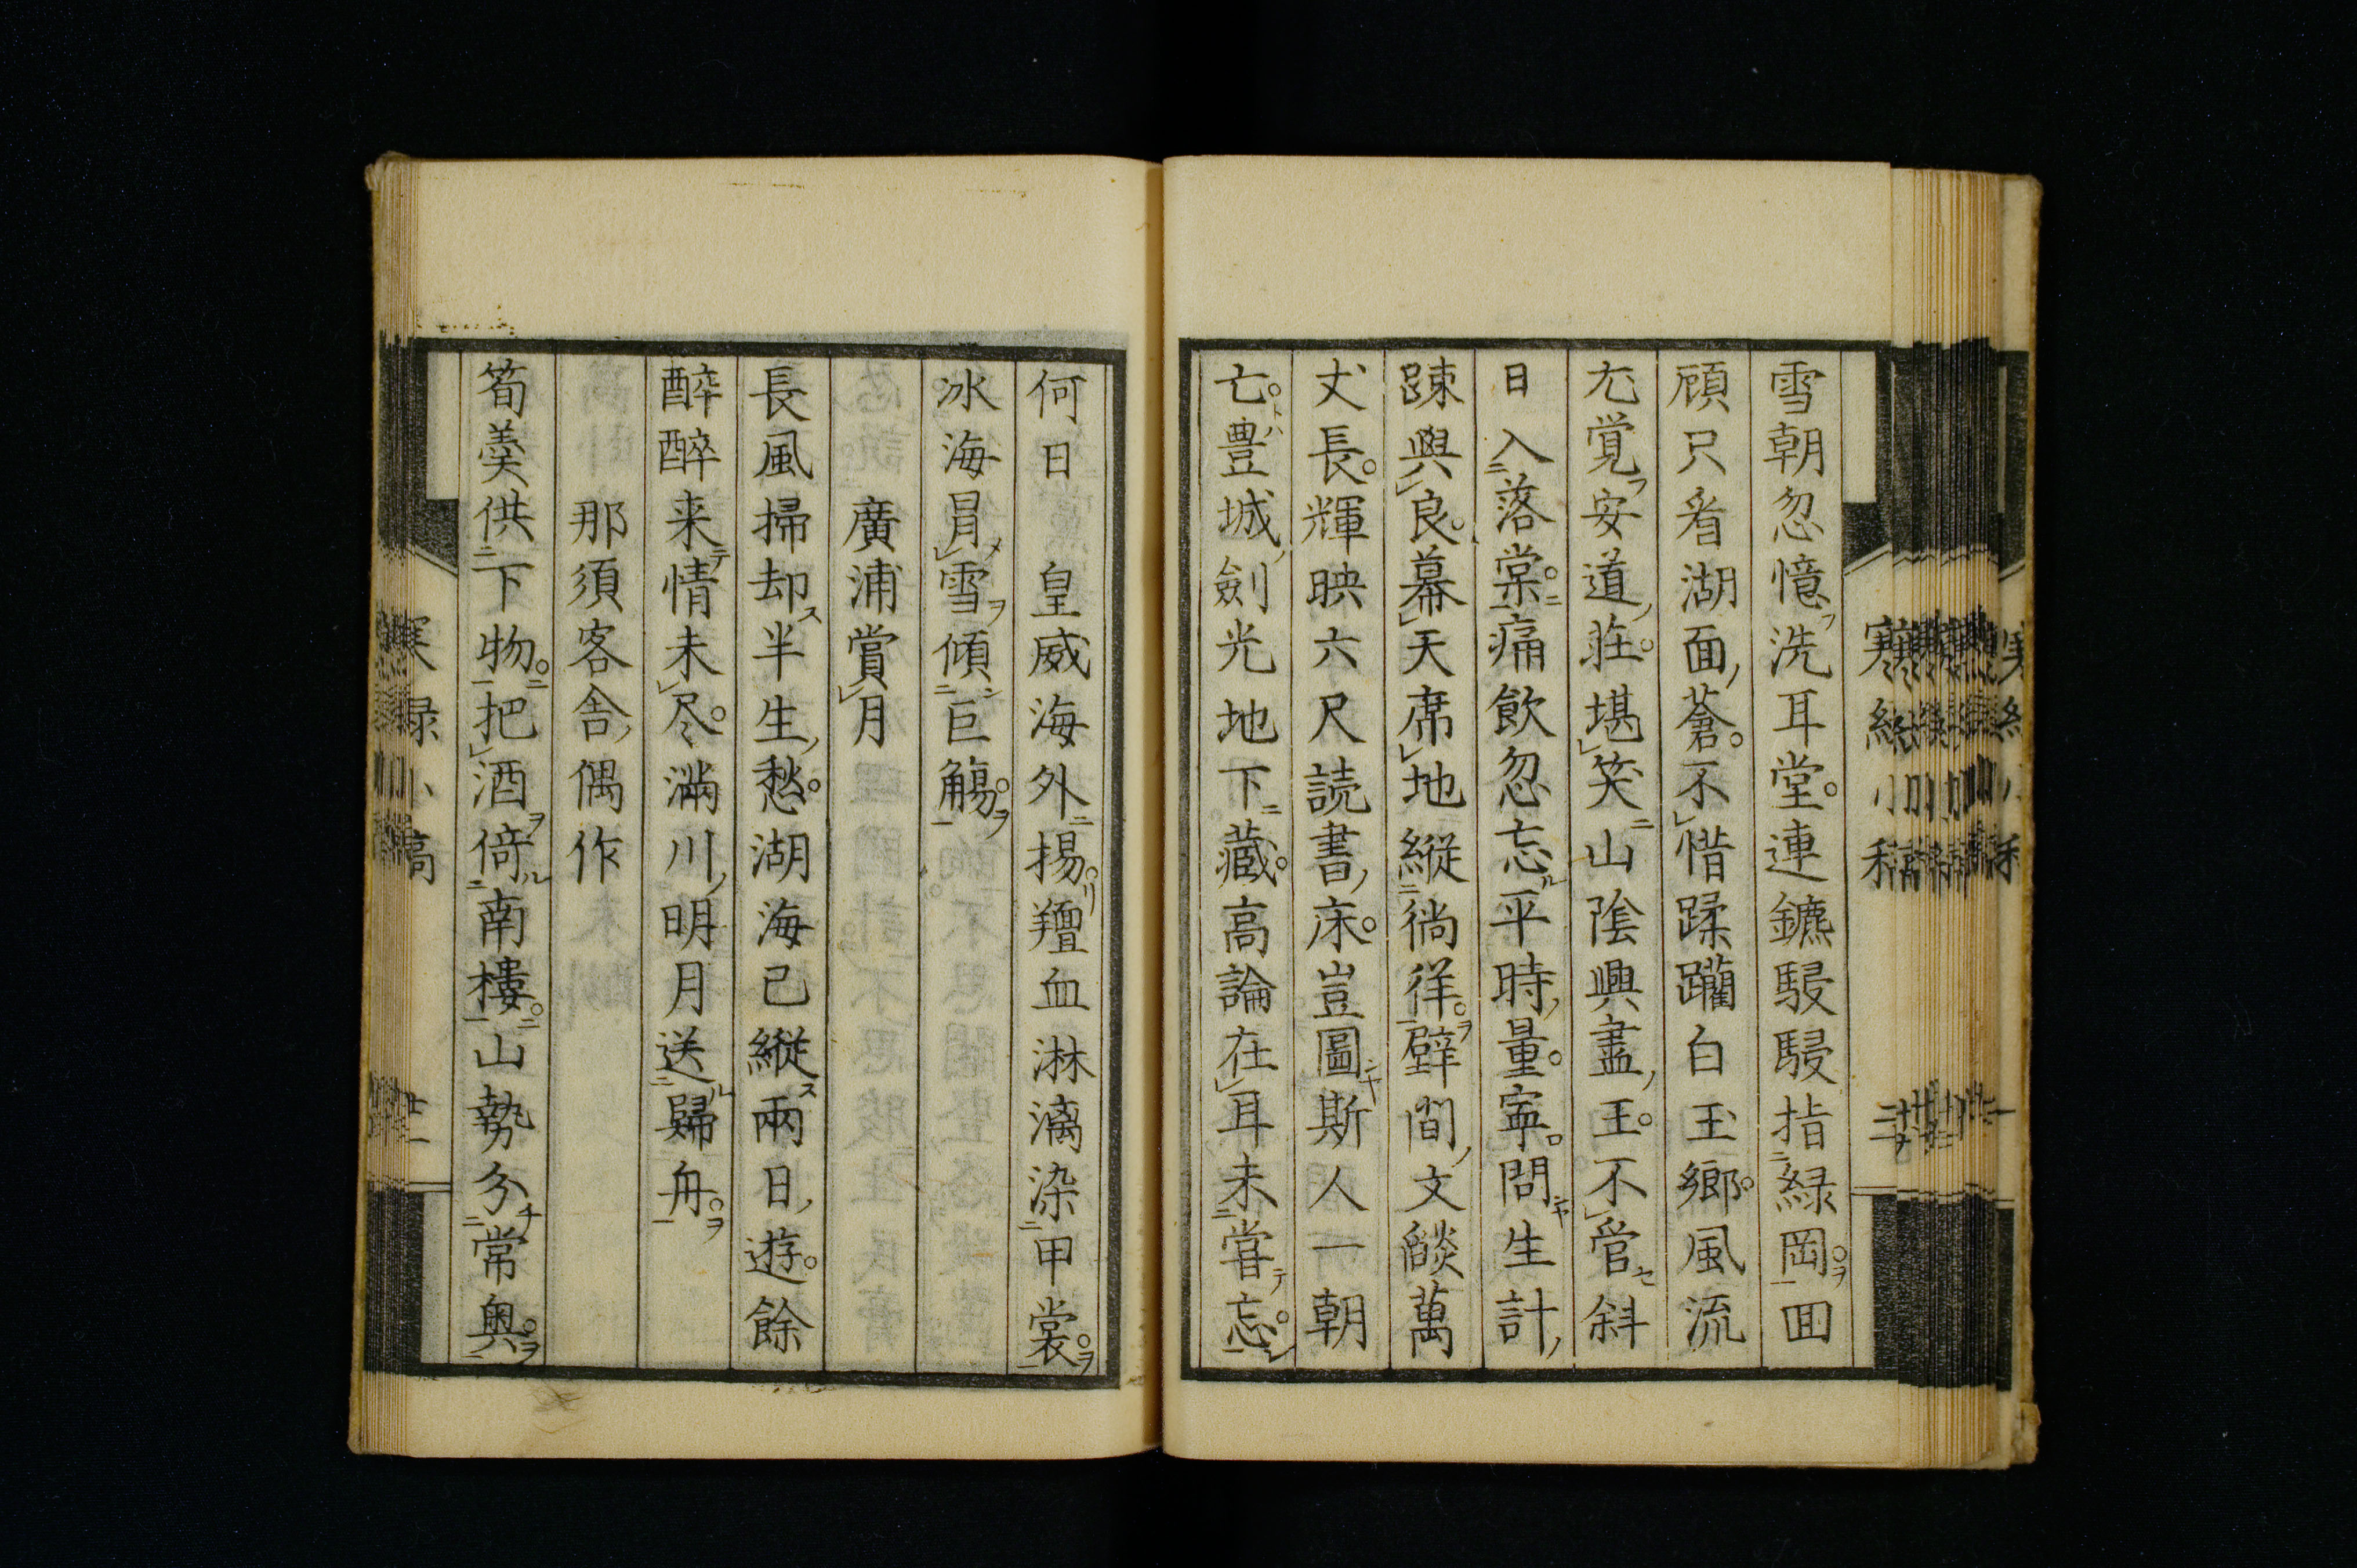 雪朝忽憶洗耳堂連鑣駸駸指緑岡回
顧只看湖面蒼不惜蹂躪白玉郷風流
尤覚安道荘堪笑山陰興盡王不管斜
日入落棠痛飲忽忘平時量寧問生計
踈與良幕天席地縦徜徉壁間文燄萬
丈長輝映六尺読書床豈圖斯人一朝
亡豊城劍光地下藏高論在耳未嘗忘
何日 皇威海外揚羶血淋漓染甲裳
冰海冐雪傾巨觴
廣浦賞月
長風掃却半生愁湖海已縦兩日遊餘
醉醉来情未尽滿川明月送歸舟
那須客舎偶作
筍羹供下物把酒倚南樓山勢分常奥